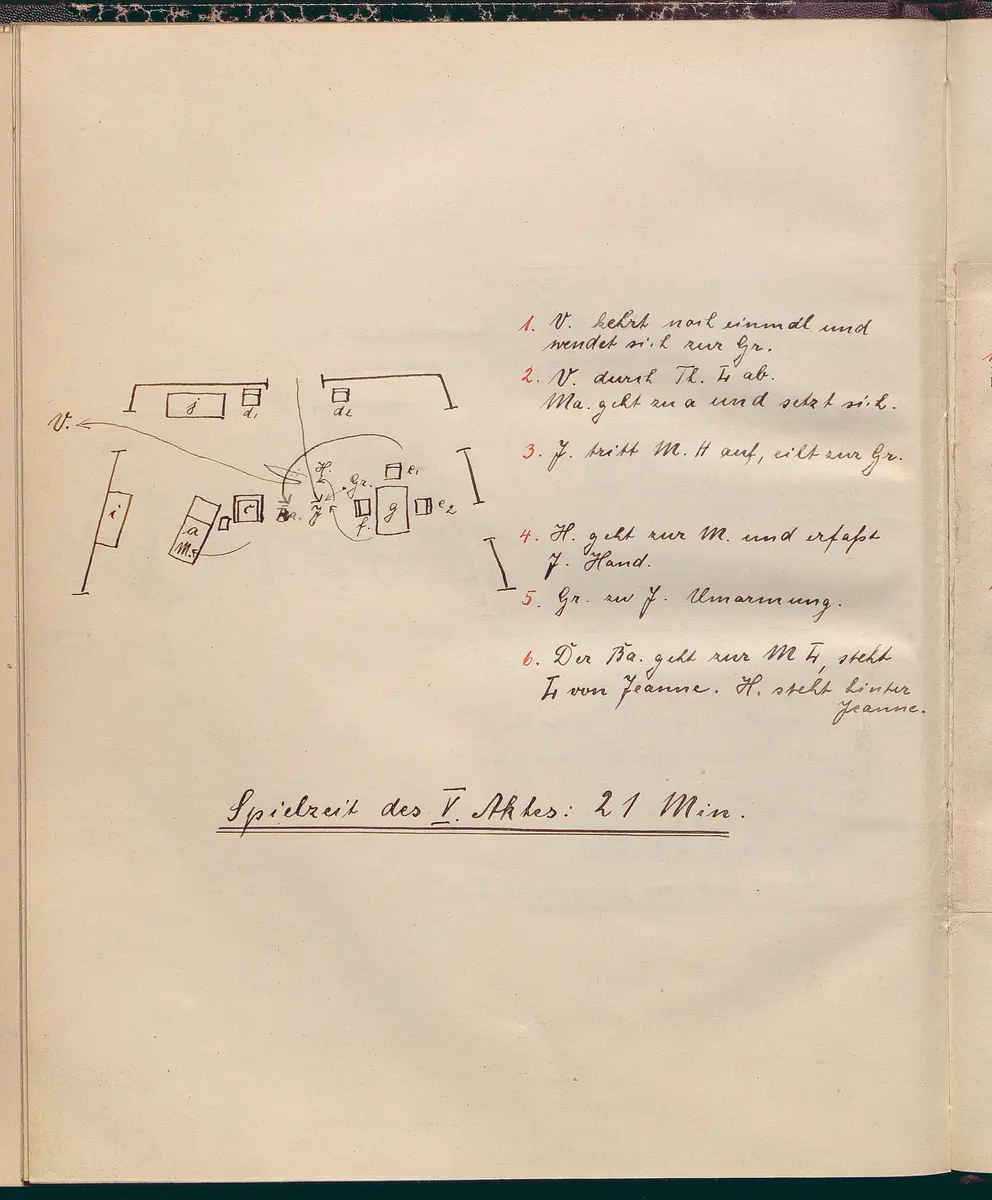 j
d1
d2
V.
H.
e1
Gr.
i
c
Ba.
J
f.
g
e2
a
M.
1. V. kehrt noch einmal und
wendet sich zur Gr.
2. V. durch Th. L ab.
Ma. geht zu a und setzt sich.
3. J. tritt M. H auf, eilt zur Gr.
4. H. geht zur M. und erfaßt
J. Hand.
5. Gr. zu J. Umarmung.
6. Der Ba. geht zur M L, steht
L von Jeanne. H. steht hinter
Jeanne.
Spielzeit des V. Aktes: 21 Min.